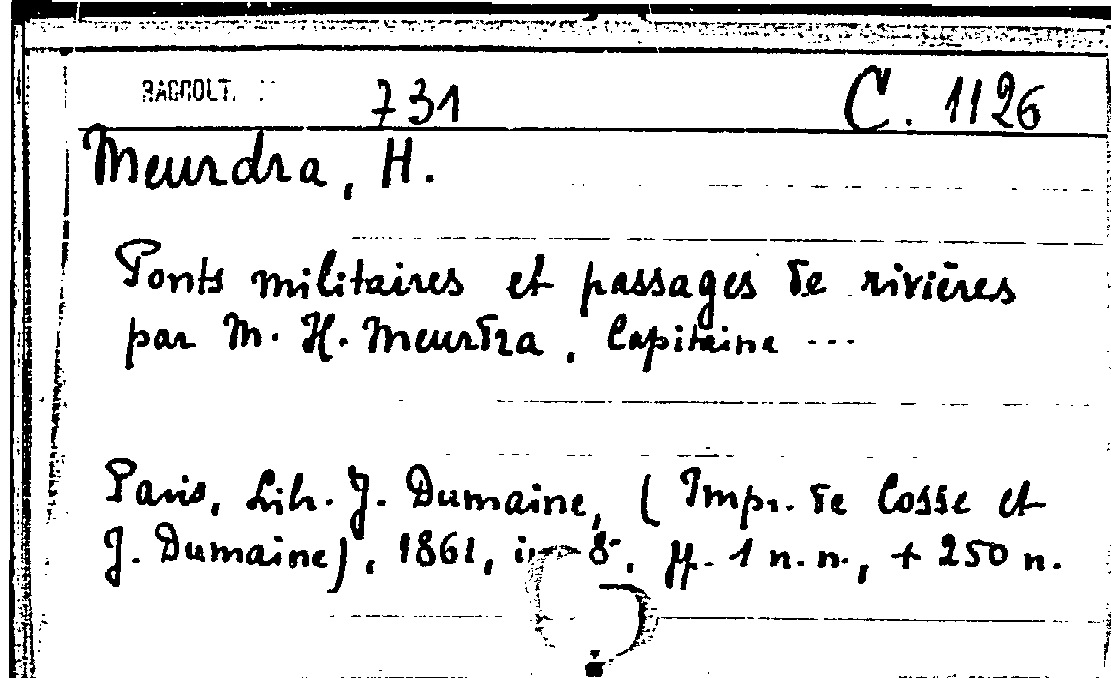 RACCOLT. 731 C. 1126
Meurdra, H.
Ponts militaires et passages de rivières
par M. H. Meurdra, Capitaine ...
Paris, Lib. J. Dumaine, (Impr. de Cosse et
J. Dumaine), 1861, in-8°, ff. 1 n.n., + 250 n.